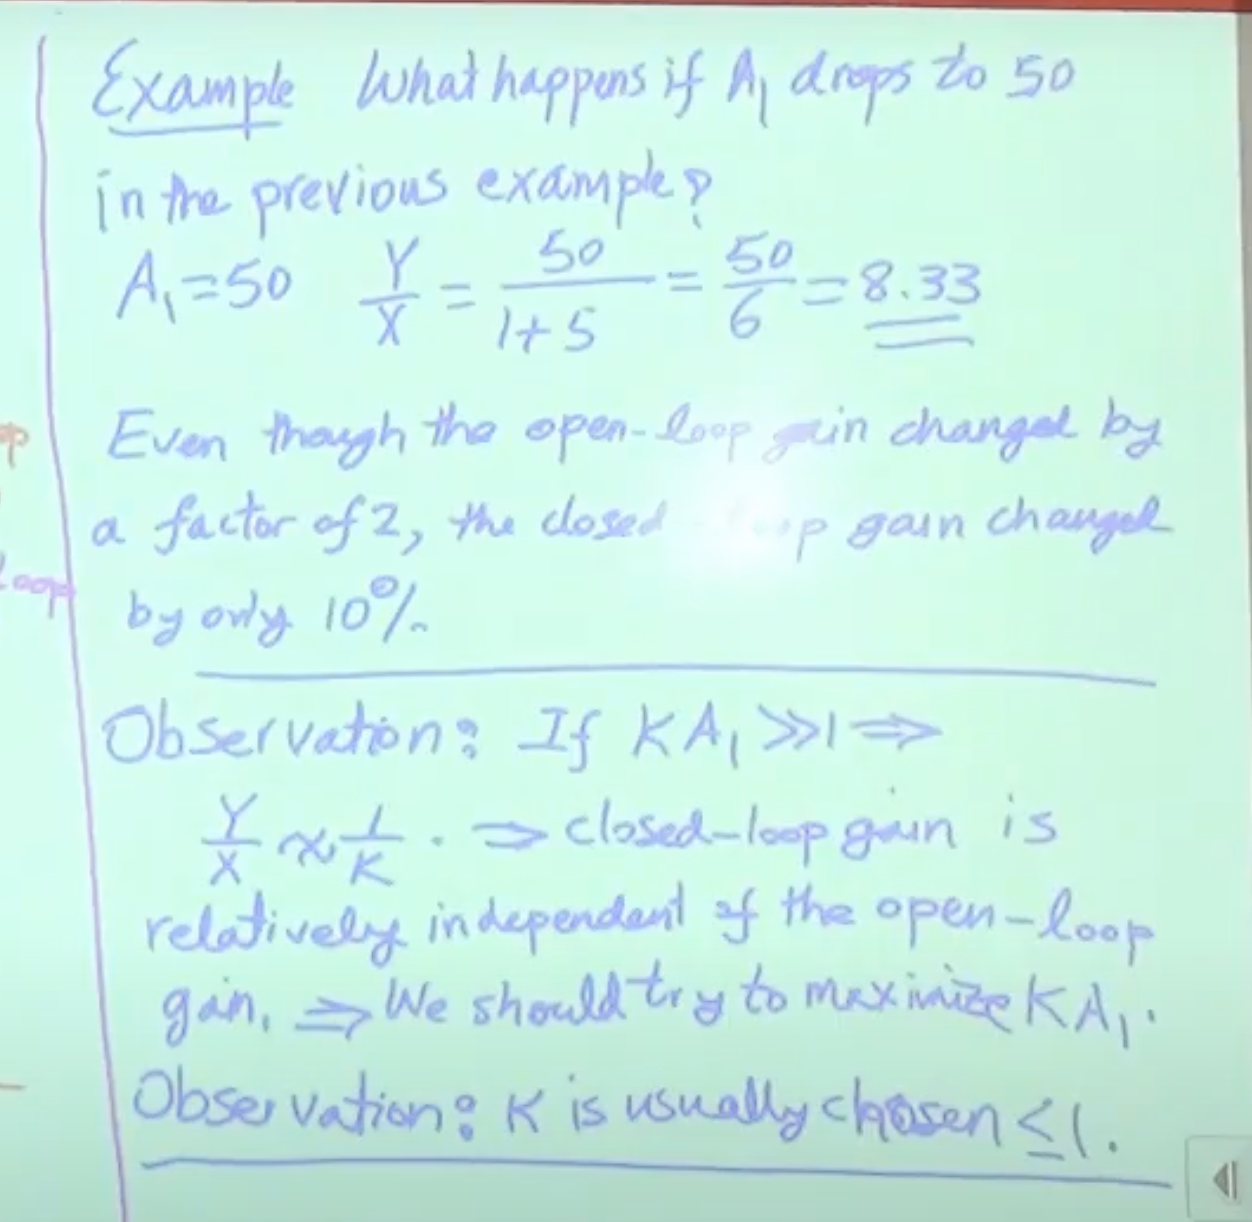 Example What happens if A₁ drops to 50
in the previous example?
A₁=50 Y/X = 50/(1+5) = 50/6 = 8.33
Even though the open-loop gain changed by
a factor of 2, the closed loop gain changed
by only 10%.
Loop
Observation: If KA₁ >>1 ⇒
Y/X ≈ 1/K. ⇒ closed-loop gain is
relatively independent of the open-loop
gain. ⇒ We should try to maximize KA₁.
Observation: K is usually chosen ≤1.